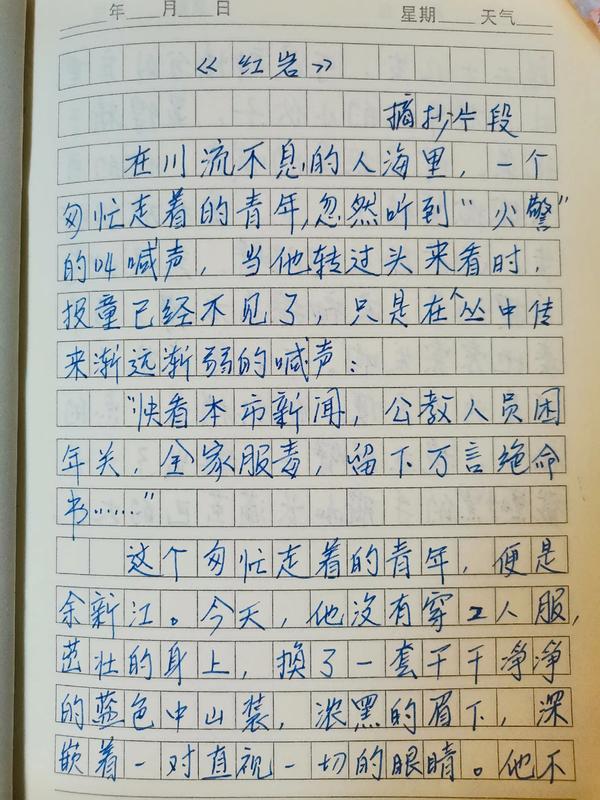 年 月 日 星期 天气
《红岩》
摘抄片段
在川流不息的人海里，一个
匆忙走着的青年，忽然听到“火警”
的叫喊声，当他转过头来看时，
报童已经不见了，只是在人丛中传
来渐远渐弱的喊声：
“快看本市新闻，公教人员困
年关，全家服毒，留下万言绝命
书……”
这个匆忙走着的青年，便是
余新江。今天，他没有穿工人服，
茁壮的身上，换了一套干干净净
的蓝色中山装，浓黑的眉下，深
嵌着一对直视一切的眼睛。他不